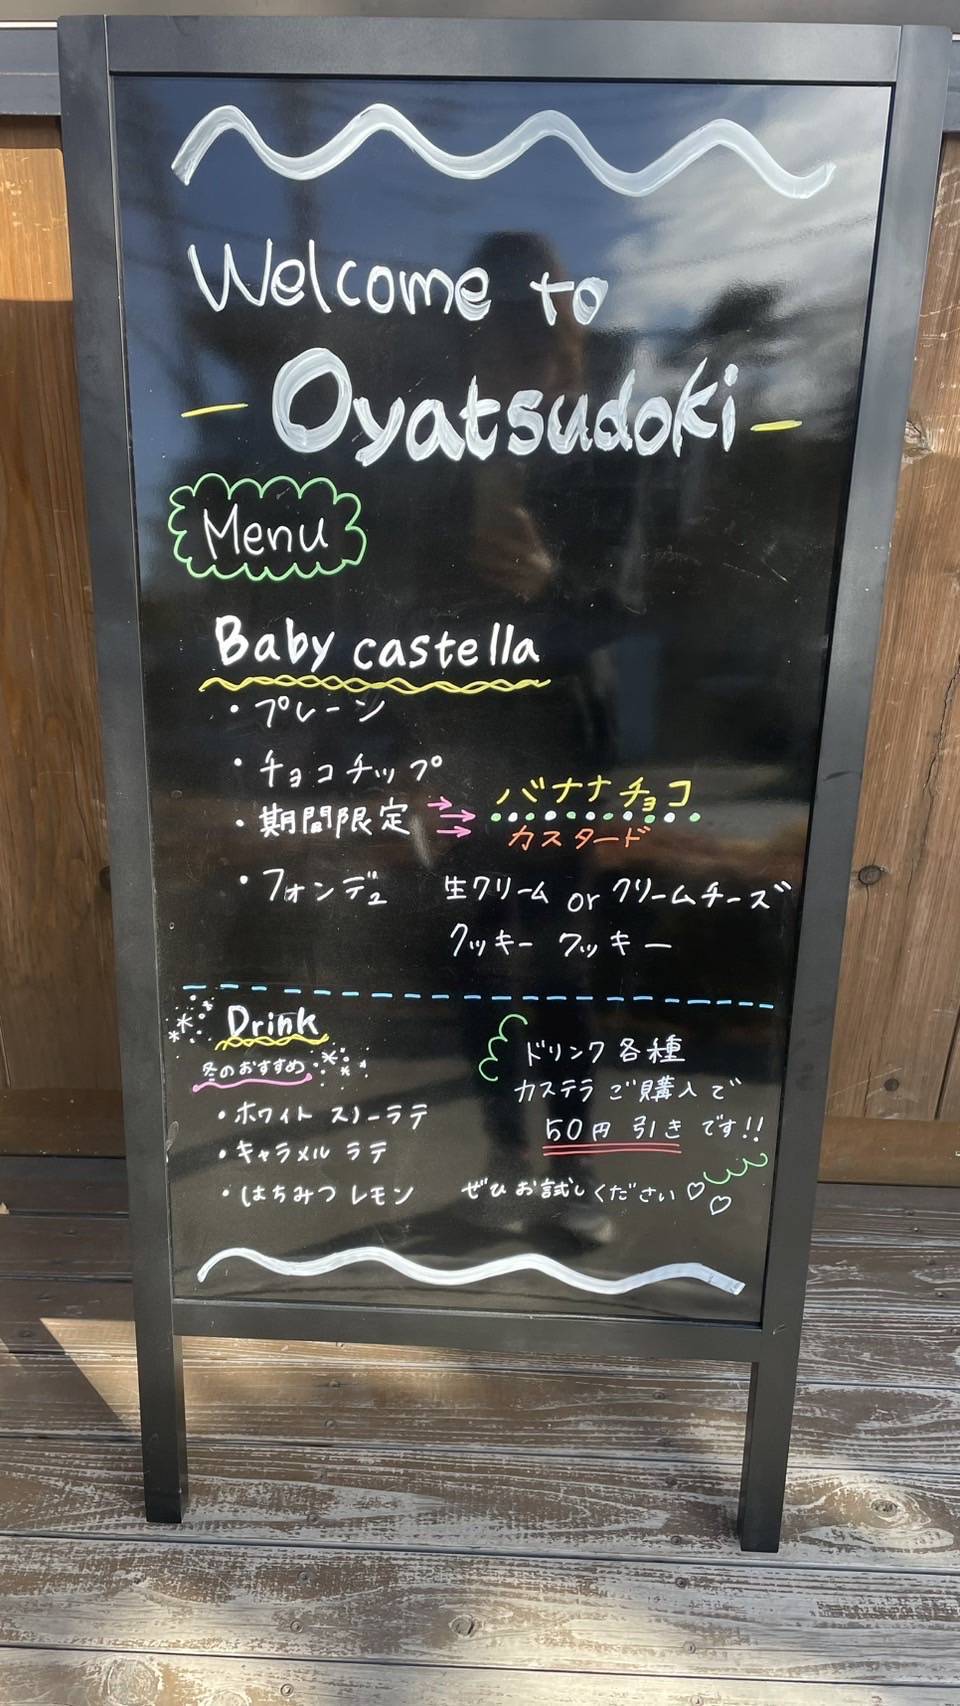 Welcome to
- Oyatsudoki -
Menu
Baby castella
・プレーン
・チョコチップ
・期間限定 →→→ バナナチョコ
カスタード
・フォンデュ 生クリーム or クリームチーズ
クッキー クッキー
Drink
冬のおすすめ
・ホワイト スノーラテ
・キャラメル ラテ
・はちみつ レモン
ドリンク各種
カステラ ご購入で
50円 引き です!!
ぜひ お試しください♡♡